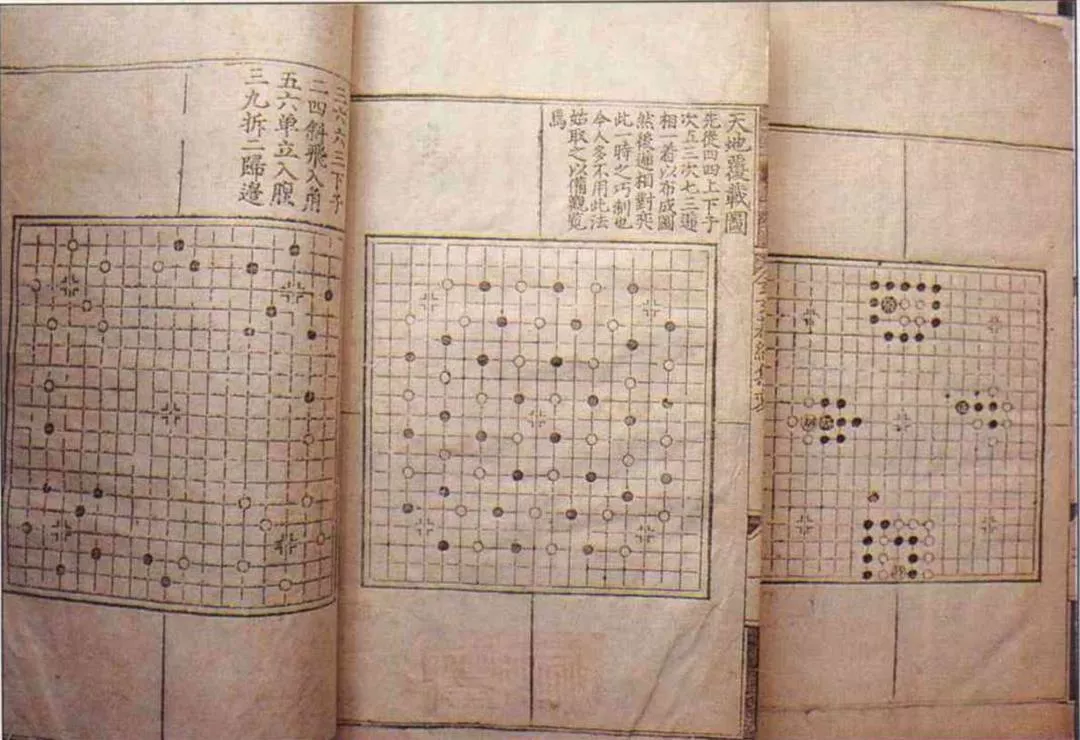 天地覆載圖
先後四四上下子
次五三次七三遞
相一着以布成圖
然後遞相對奕
此一時之巧制也
今人多不用此法
姑取之以備觀覽
焉
三六六三下子
二四斜飛入角
五六单立入腹
三九拆二歸邉